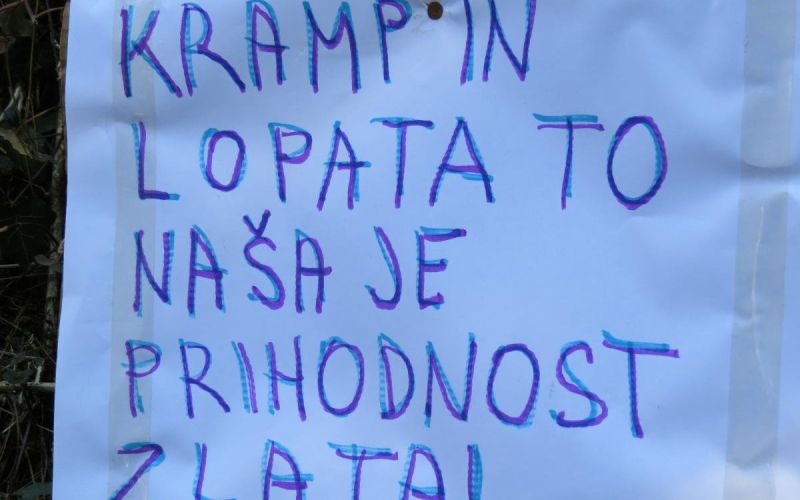 KRAMP IN
LOPATA TO
NAŠA JE
PRIHODNOST
ZLATA!